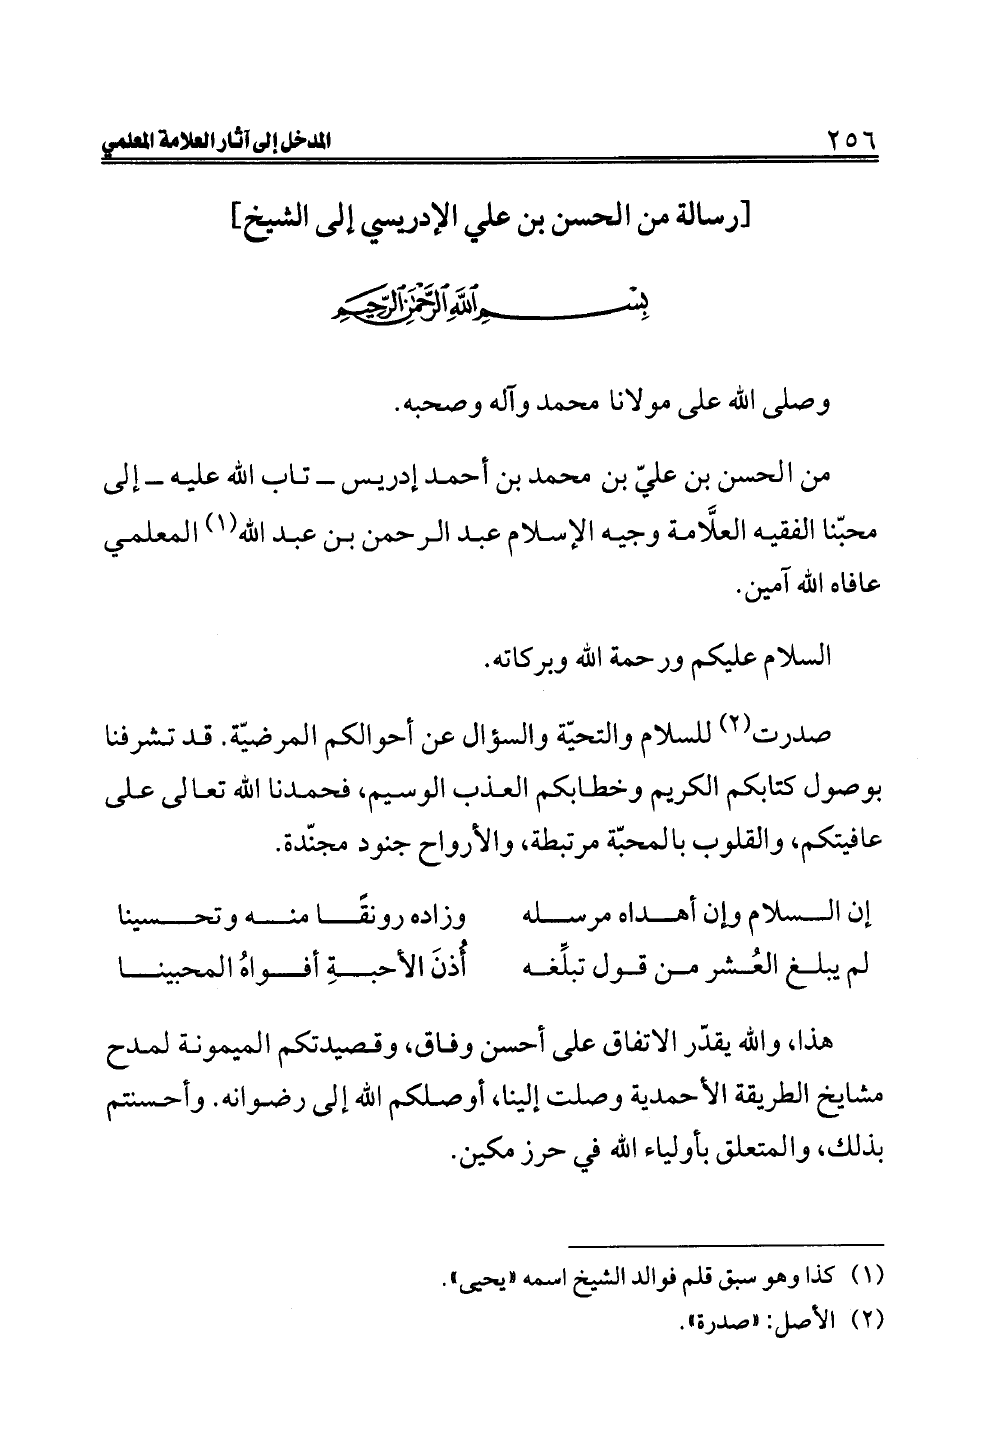 ٢٥٦ المدخل إلى آثار العلامة المعلمي
[رسالة من الحسن بن علي الإدريسي إلى الشيخ]
بِسْمِ اللَّهِ الرَّحْمَٰنِ الرَّحِيمِ
وصلى الله على مولانا محمد وآله وصحبه.
من الحسن بن عليّ بن محمد بن أحمد إدريس ـ تاب الله عليه ـ إلى
محبّنا الفقيه العلَّامة وجيه الإسلام عبد الرحمن بن عبد الله(١) المعلمي
عافاه الله آمين.
السلام عليكم ورحمة الله وبركاته.
صدرت(٢) للسلام والتحيّة والسؤال عن أحوالكم المرضيّة. قد تشرفنا
بوصول كتابكم الكريم وخطابكم العذب الوسيم، فحمدنا الله تعالى على
عافيتكم، والقلوب بالمحبّة مرتبطة، والأرواح جنود مجنّدة.
إن السلام وإن أهداه مرسله وزاده رونقًا منه وتحسينا
لم يبلغ العُشر من قول تبلِّغه أُذنَ الأحبةِ أفواهُ المحبينا
هذا، والله يقدّر الاتفاق على أحسن وفاق، وقصيدتكم الميمونة لمدح
مشايخ الطريقة الأحمدية وصلت إلينا، أوصلكم الله إلى رضوانه. وأحسنتم
بذلك، والمتعلق بأولياء الله في حرز مكين.
(١) كذا وهو سبق قلم فوالد الشيخ اسمه «يحيى».
(٢) الأصل: «صدرة».